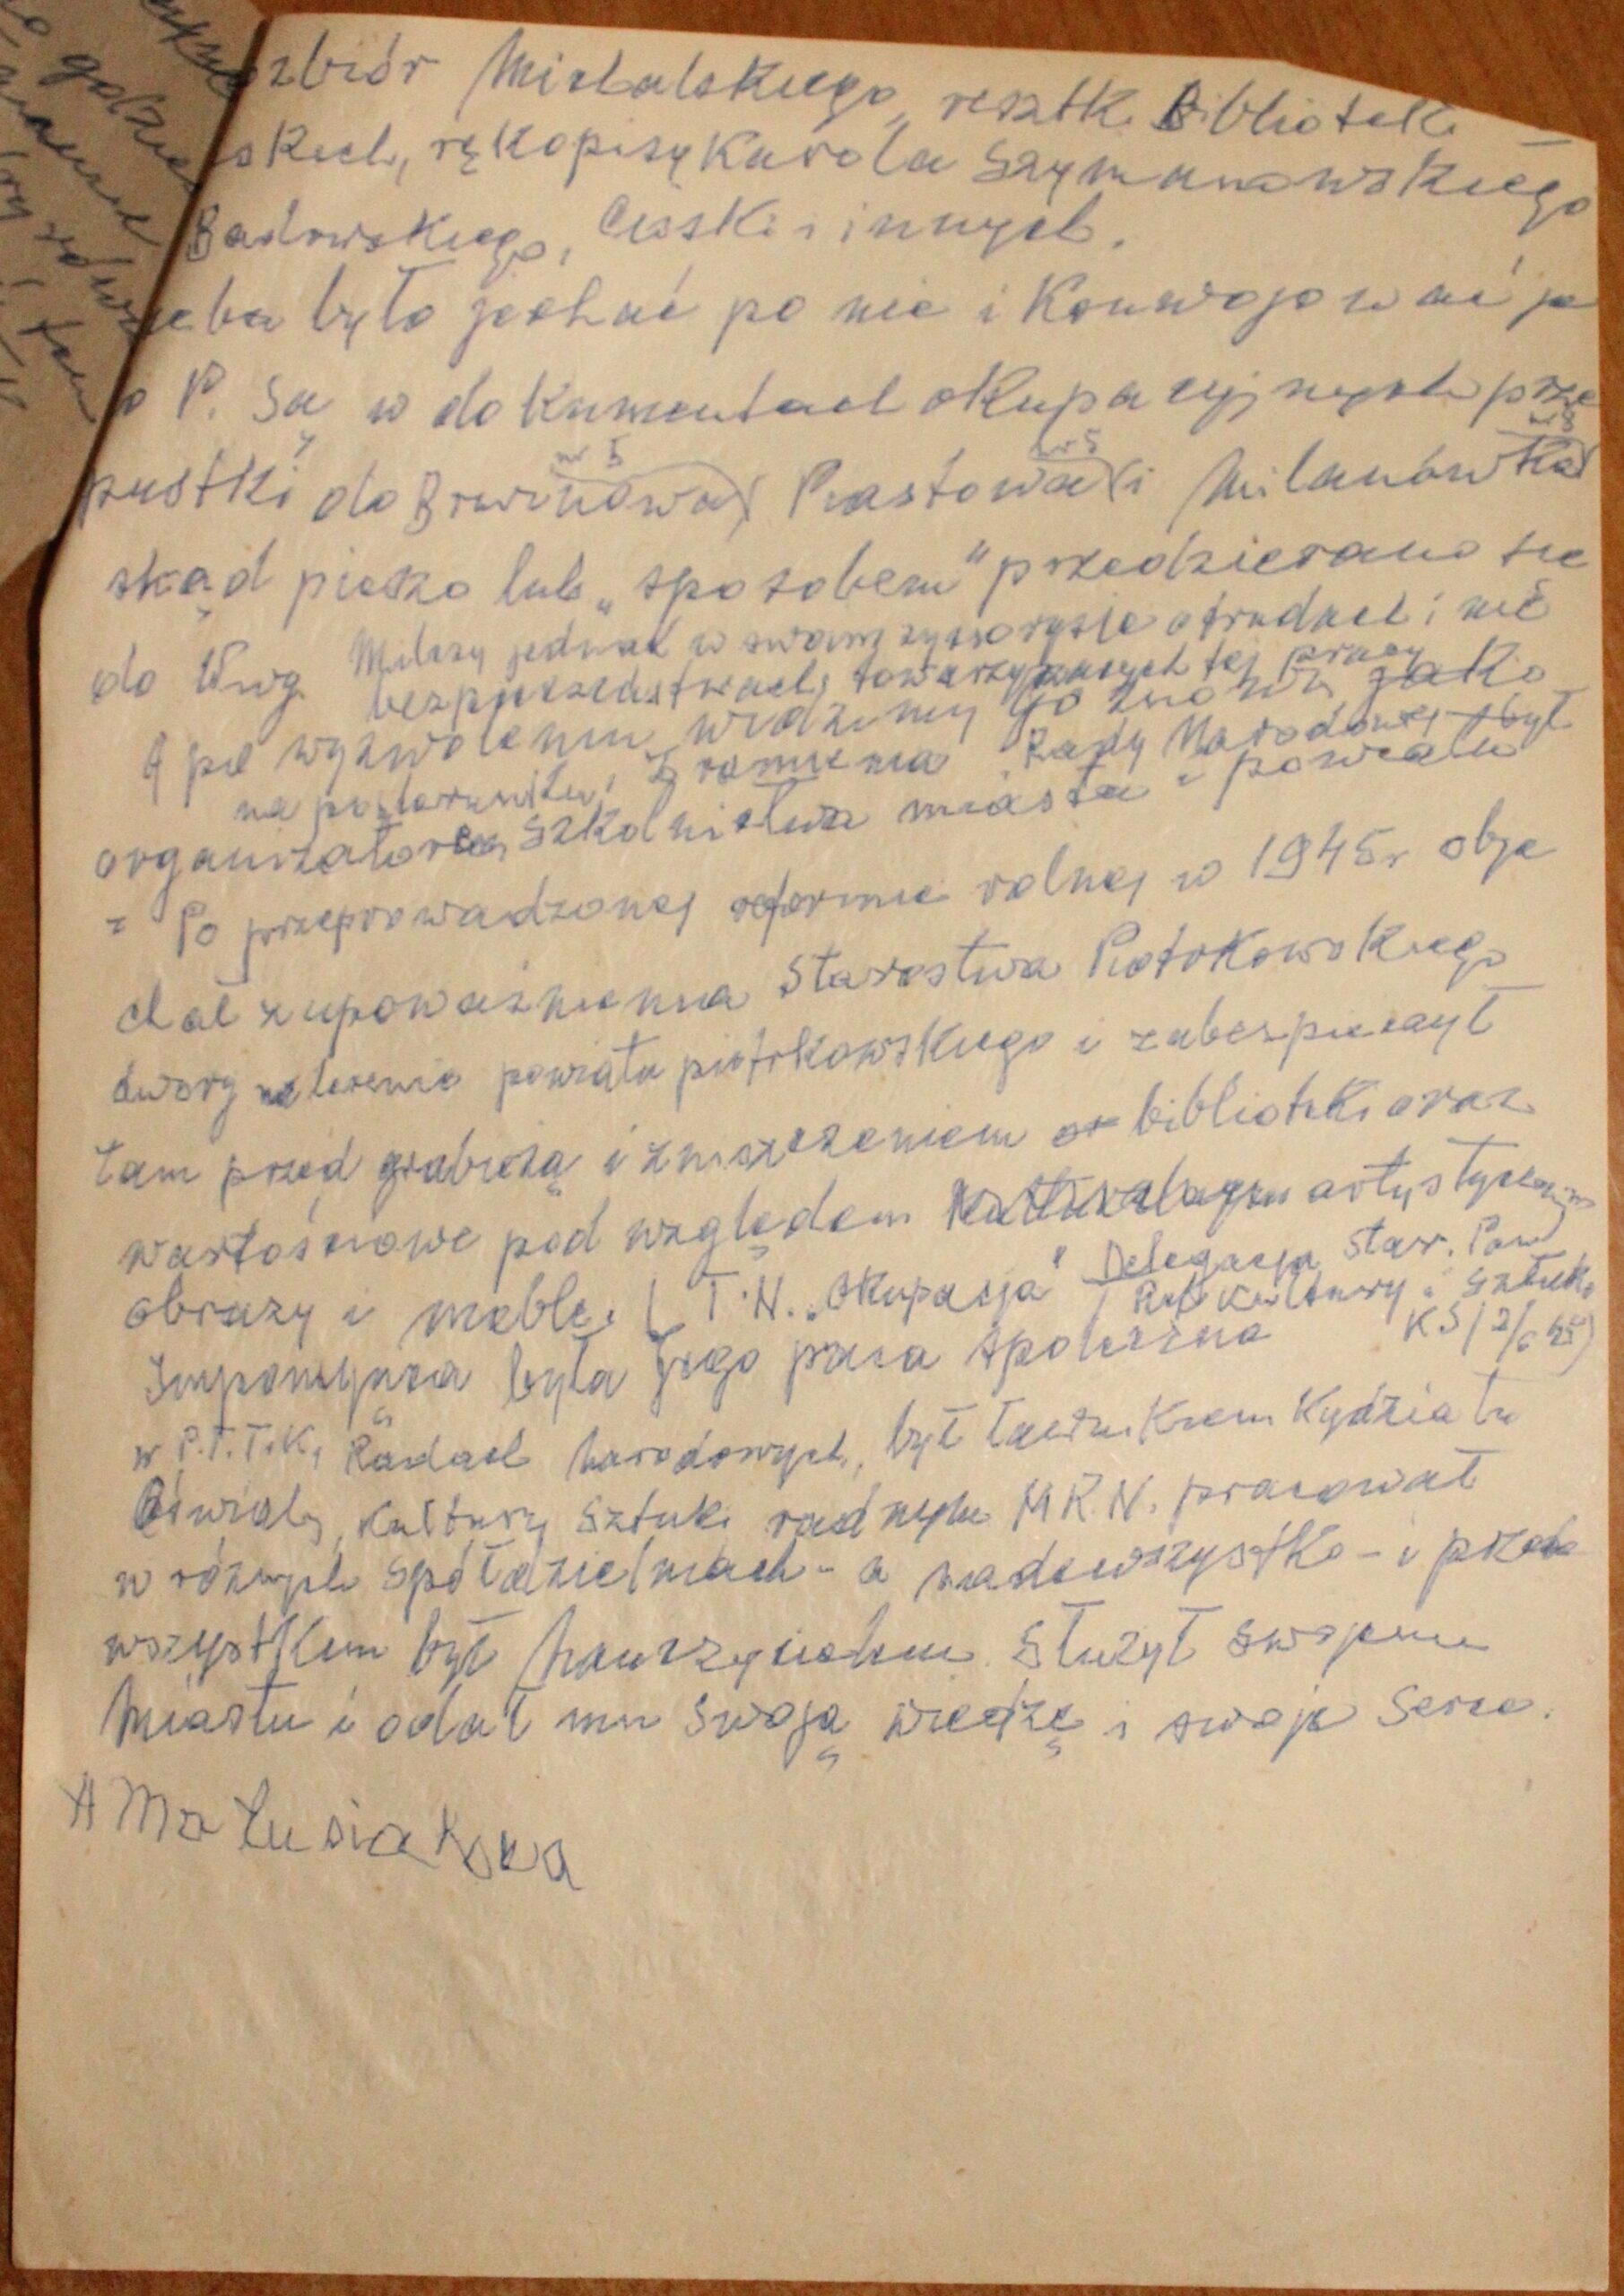 zbiór Michalskiego, resztki Biblioteki
skich, rękopisy Karola Szymanowskiego
Badowskiego, i innych.
eba było jechać po nie i Konwojować je
o P. Są w dokumentach okupacyjnych prze
nr 5 nr 5 nr 5
pustki do Brwinowa) Piastowa) i Milanówka)
skąd pieszo lub „sposobem" przedzierano się
do Wwy. Milczy jednak w swoim życiorysie o trudach i nie
bezpieczeństwach, towarzyszących tej pracy
A po wyzwoleniu widzimy go znowu jako
na posterunku, Z ramienia Rady Narodowej był
organizatorem szkolnictwa miasta i powiatu
Po przeprowadzonej reformie rolnej w 1945 r obje
chał z upoważnienia Starostwa Piotrkowskiego
dwory na terenie powiatu piotrkowskiego i zabezpieczył
tam przed grabieżą i zniszczeniem biblioteki oraz
wartościowe pod względem artystycznym
obrazy i meble. ( T.N. „Okupacja" Delegacja Star. Pow
Ref Kultury i Sztuki
KS/2/6 45)
Imponująca była Jego praca społeczna
w P.T.T.K, Radach Narodowych, był ławnikiem Wydziału
Oświaty, Kultury Sztuki radnym M.R.N. pracował
w różnych Spółdzielniach - a nadewszystko - i przede
wszystkim był Nauczycielem. Służył swojemu
Miastu i oddał mu swoją wiedzę i swoje Serce.
A Matusiakowa